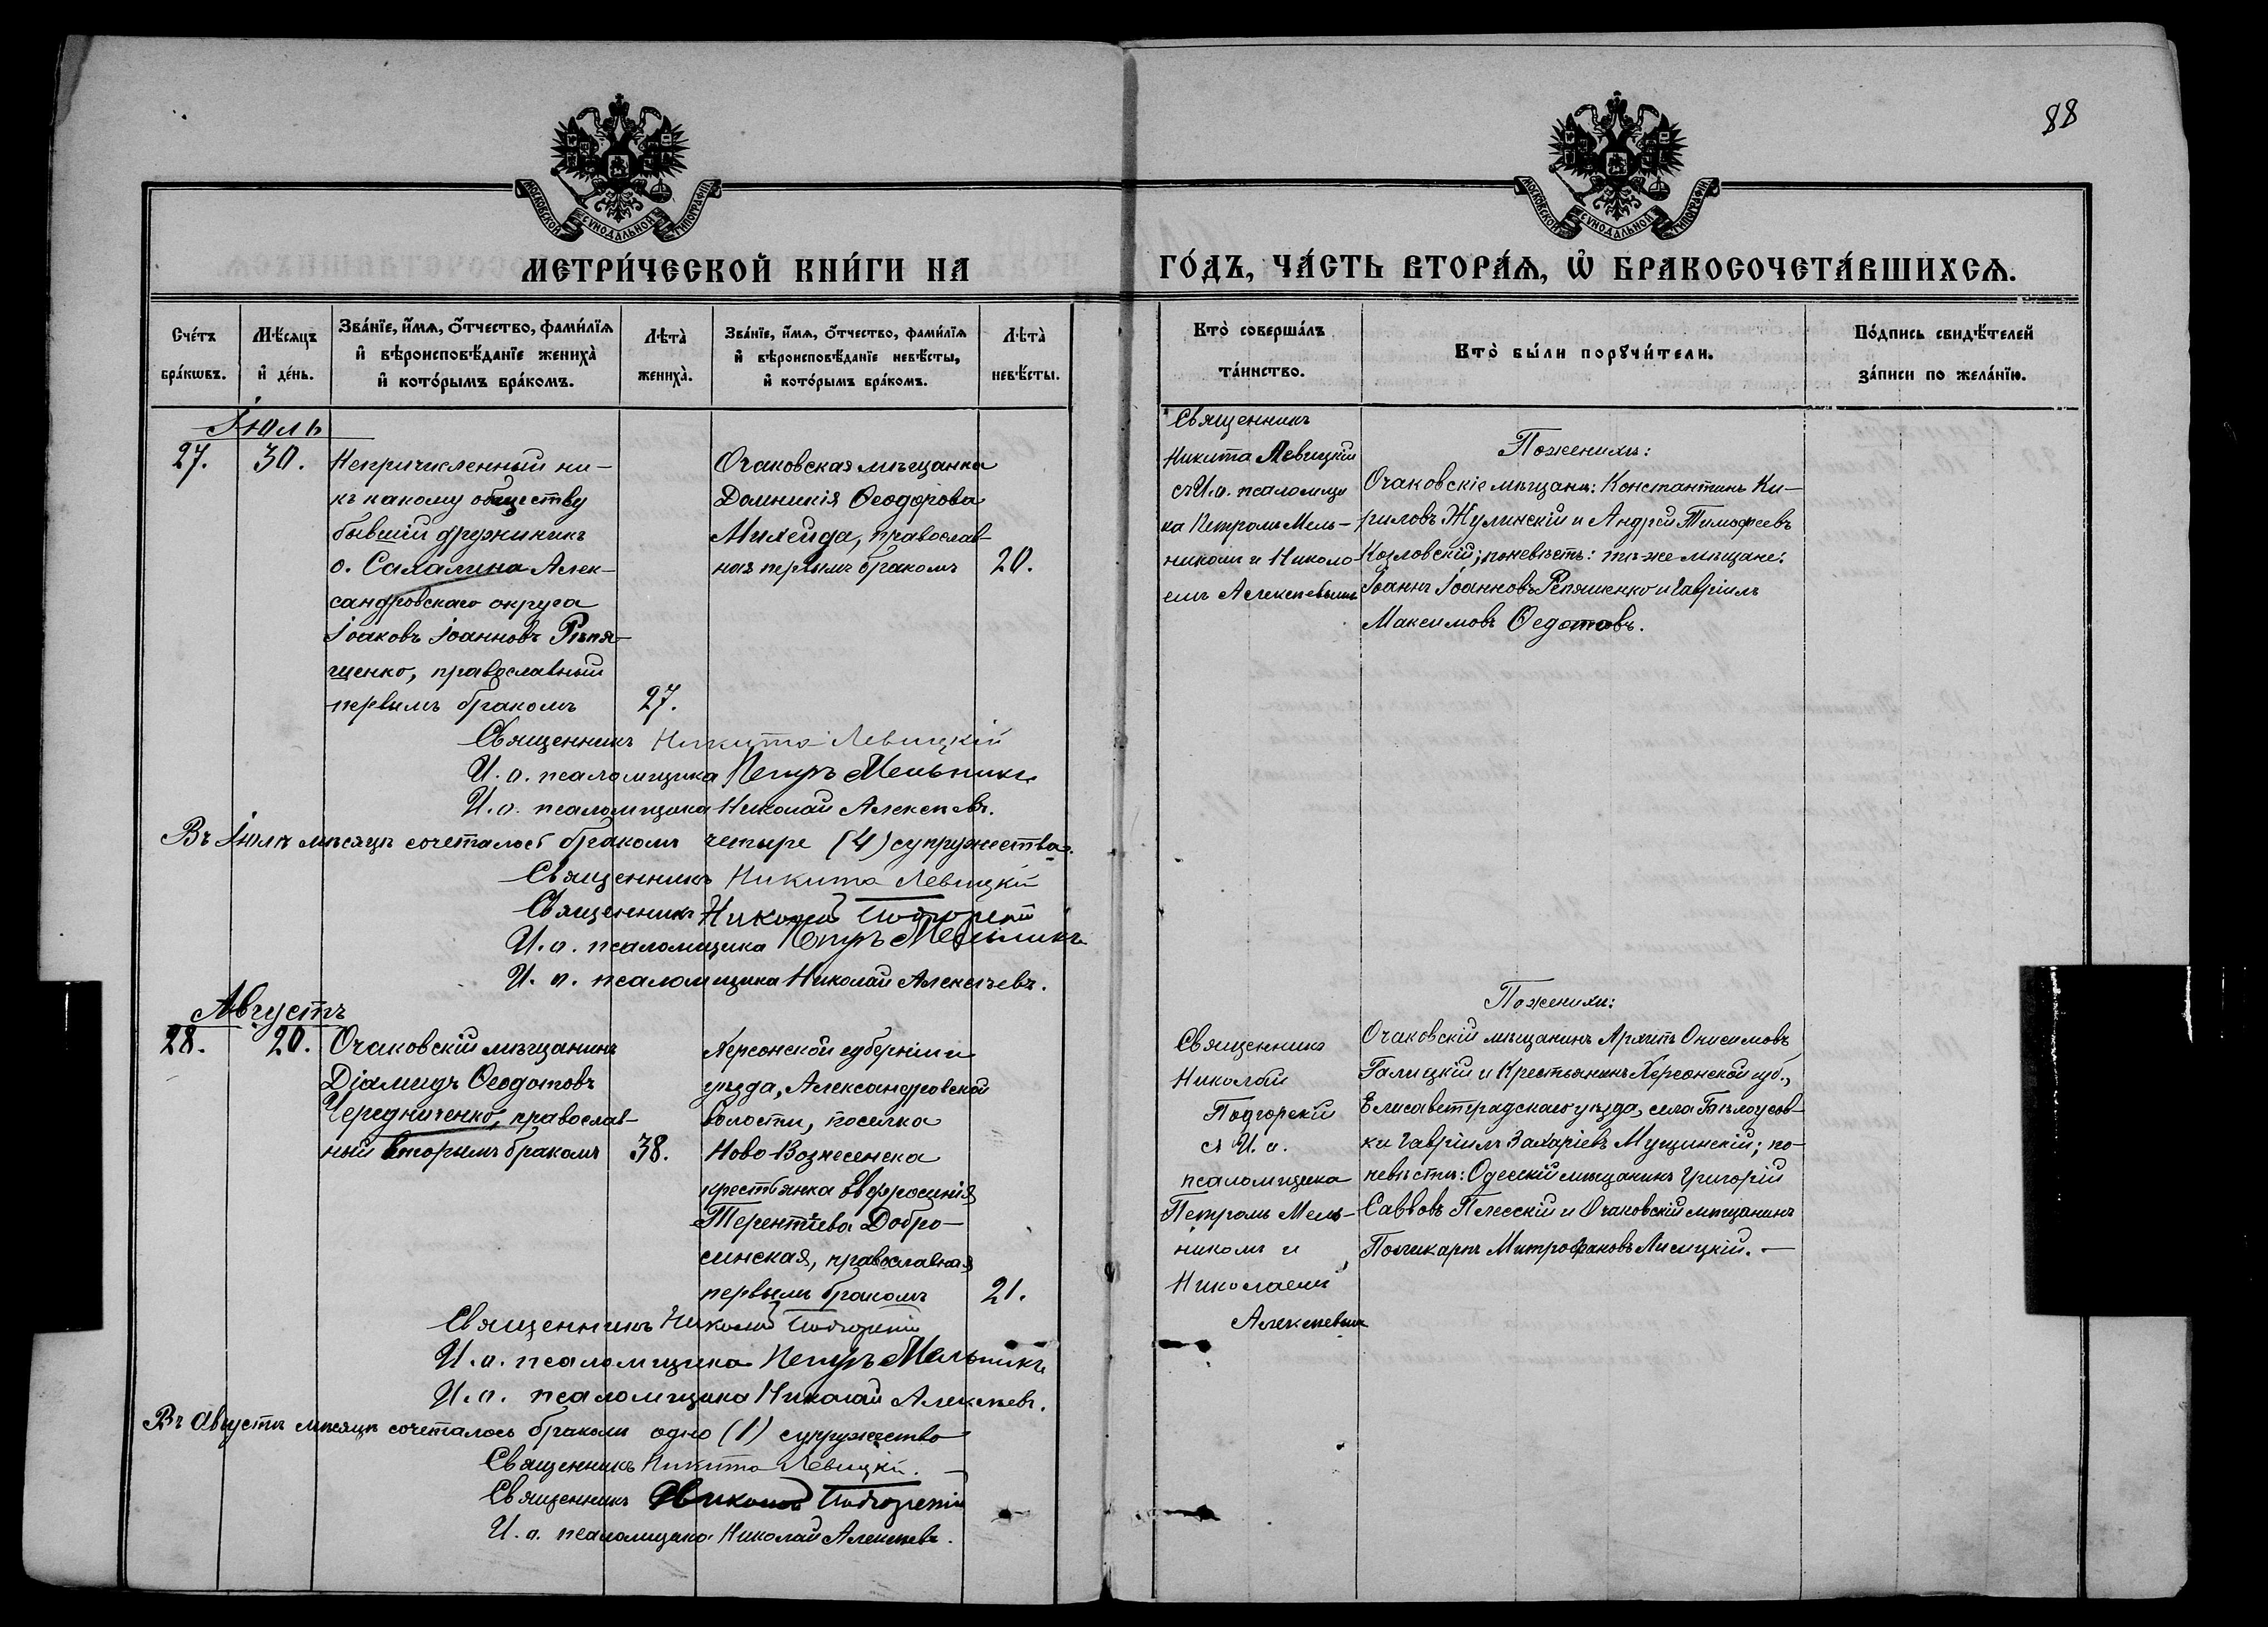 88
МОСКОВСКОЙ СѴНОДАЛЬНОЙ ТИПОГРАФІИ
МОСКОВСКОЙ СѴНОДАЛЬНОЙ ТИПОГРАФІИ
МЕТРИ́ЧЕСКОЙ КНИ́ГИ НА
ГО́ДЪ, ЧА́СТЬ ВТОРА́Ѧ, Ѡ҆ БРАКОСОЧЕТА́ВШИХСѦ.
Сче́тъ бра́кѡвъ.
Мѣ́сяцъ и҆ де́нь.
Зва́нїе, и҆́мѧ, ѻ҆́тчество, фами́лїѧ
и҆ вѣроисповѣ́данїе жениха̀
и҆ кото́рымъ бра́комъ.
Лѣта̀ жениха̀.
Зва́нїе, и҆́мѧ, ѻ҆́тчество, фами́лїѧ
и҆ вѣроисповѣ́данїе невѣ́сты,
и҆ кото́рымъ бра́комъ.
Лѣта̀ невѣ́сты.
Кто̀ соверша́лъ
та́инство.
Кто̀ бы́ли порꙋчи́тели.
По́дпись свидѣ́телей
за́писи по жела́нїю.
Іюль
27.
30.
Непричисленный ни-
къ какому обществу
бывшій дружиникъ
о. Сахалина Алек-
сандровскаго округа
Іоаковъ Іоанновъ Рѣпя-
щенко, православный
первымъ бракомъ
27.
Очаковская мѣщанка
Домникія Ѳеодорова
Михейда, православ-
ная первымъ бракомъ
20.
Священникъ
Никита Левицкій
съ И.о. псаломщи
ка Петромъ Мель-
никомъ и Никола-
емъ Алексѣевымъ
По женихѣ:
Очаковскіе мѣщане: Константинъ Ки-
риловъ Жулинскій и Андрей Тимофеевъ
Козловскій; по невѣстѣ: тѣ-же мѣщане:
Іоаннъ Іоанновъ Репяшенко и Гавріилъ
Максимовъ Ѳедотовъ.
Священникъ Никита Левицкій
И. о. псаломщика Петръ Мельникъ
И. о. псаломщика Николай Алексѣевъ.
Въ Іюлѣ мѣсяцѣ сочеталось бракомъ четыре (4) супружества.
Священникъ Никита Левицкій
Священникъ Николай Подгорскій
И. о. псаломщика Петръ Мельникъ
И. о. псаломщика Николай Алексѣевъ.
Августъ
28.
20.
Очаковскій мѣщанинъ
Діамидъ Ѳеодотовъ
Чередниченко, православ-
ный вторымъ бракомъ
38.
Херсонской губерніи и
уѣзда, Александровской
волости, поселка
Ново-Вознесенска
крестьянка Евфросинія
Терентіева Добро-
синская, православная
первымъ бракомъ
21.
Священникъ
Николай
Подгорскій
съ И. о.
псаломщика
Петромъ Мель-
никомъ и
Николаемъ
Алексѣевымъ
По женихѣ:
Очаковскій мѣщанинъ Архипъ Онисимовъ
Галицкій и Крестьянинъ Херсонской губ.,
Елисаветградскаго уѣзда, села Бѣлоусов-
ки Гавріилъ Захаріевъ Мущинскій; по-
невѣстѣ: Одесскій мѣщанинъ Григорій
Саввовъ Плесскій и Очаковскій мѣщанинъ
Поликарпъ Митрофановъ Лисицкій. —
Священникъ Николай Подгорскій
И. о. псаломщика Петръ Мельникъ
И. о. псаломщика Николай Алексѣевъ.
Въ Августѣ мѣсяцѣ сочеталось бракомъ одно (1) супружество
Священникъ Никита Левицкій. —
Священникъ Николай Подгорскій
И. о. псаломщика Николай Алексѣевъ.